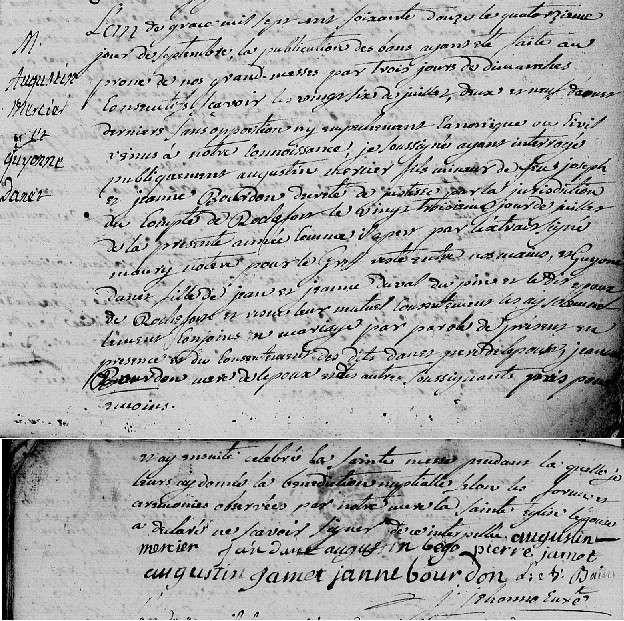 M.
Augustin
Mercier
et
Guyonne
Danet
Lan de grace mil sept cent soixante douze le quatorzieme
jour de septembre, la publication des bans ayant été faite au
prone de nos grand-messes par trois jours de dimanches
consecutifs sçavoir les vingt six de juillet, deux et neuf daoust
derniers sans opposition ny empechement canonique ou civil
venus à notre connoissance, je soussigné ayant interrogé
publiquement augustin mercier fils mineur de feu joseph
et jeanne Bourdon decreté de justice par la jurisdiction
du Comté de Rochefort le vingt troisieme jour de juillet
de la presente année comme
pour le greff et Guyonne
danet fille de jean et jeanne duval du
de Rochefort et reçu leur mutuel consentement les ay
conjoins en mariage par parole de present en
presence et du consentement des dits danet pere de lepouse, jeanne
Bourdon mere de lepoux et des autres soussignants pris pour
temoins.
et ay ensuite celebré la sainte messe pendant la quelle je
leurs ay donné la benediction nuptialle selon les formes et
ceremonies observées par notre mere la sainte Eglise lepouse
a declaré ne scavoir signer de ce interpellé augustin
mercier jan danet augustin bego pierre jamet
augustin Jamet janne bourdon